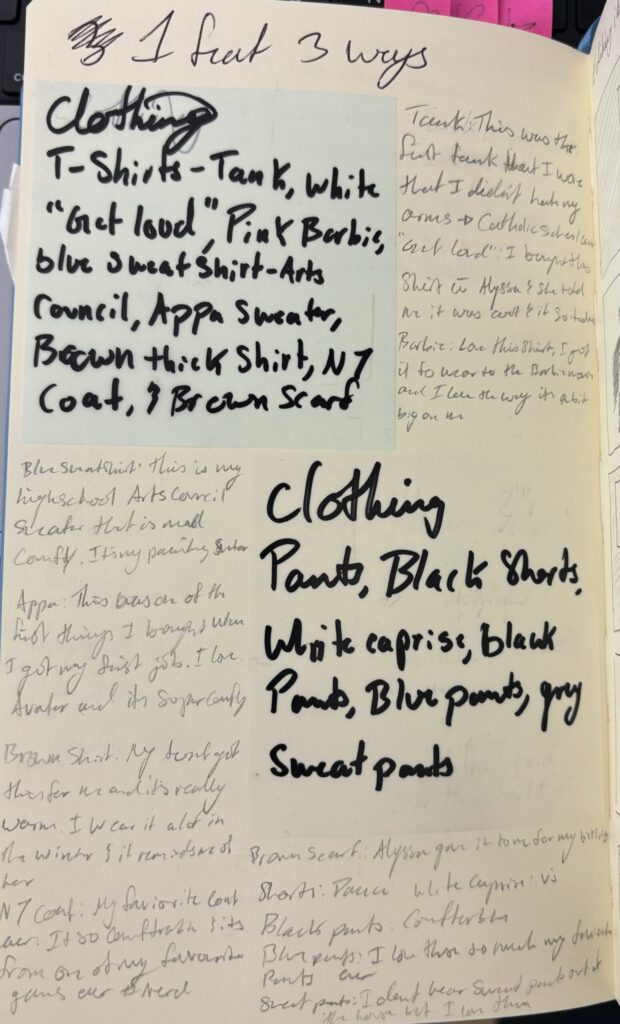 1 feat 3 ways
Clothing
T-Shirts-Tank, white
"Get loud", Pink Barbie,
blue sweatshirt-Arts
Council, Appa Sweater,
Brown thick Shirt, N7
Coat, & Brown Scarf
Tank: This was the
first tank that I wore
that I didn't hate my
arms → Catholic school
"Get Loud": I bought this
Shirt Alyssa & she told
me it was cool & it
Barbie: Love this shirt, I got
it to wear to the Barbie movie
and I love the way its a bit
big on me
Blue Sweatshirt: This is my
highschool Arts Council
sweater that is
Comfy. Its my painting
Appa: This was one of the
first things I bought when
I got my first job. I love
Avatar and its super comfy
Brown Shirt: My got
this for me and it's really
warm. I wear it alot in
the winter & it reminds me of
her
N7 Coat: My favorite coat
ever. It so & its
from one of my favourite
games ever nerd
Clothing
Pants, Black Shorts,
White caprise, black
Pants, Blue pants, grey
Sweatpants
Brown Scarf: Alyssa gave it to me for my birthday
Shorts: White caprise:
Black pants:
Blue pants: I love these so much my favourite
Pants ever
Sweatpants: I dont wear Sweat pants out of
the house but I love them